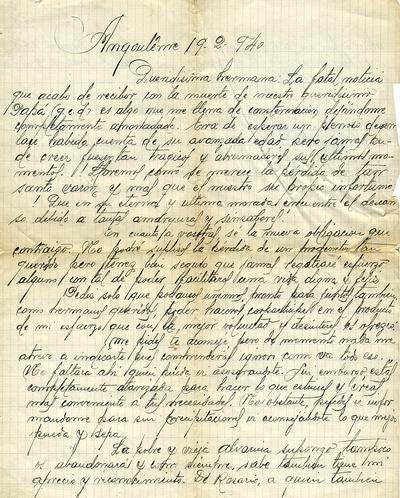 Angoulême 19-2-940
Queridísima hermana: La fatal noticia
que acabo de recibir con la muerte de nuestro queridísimo
Papá (q.e.d) es algo que me llena de consternación dejándome
completamente anonadado. Era de esperar un
lace habida cuenta de su avanzada edad pero jamás pu-
de creer fuesen tan trágicos y abrumadores sus últimos mo-
mentos! Lloremos como se merece la pérdida de tan
santo varón y más que el nuestro su propio infortunio.
¡Que en su eterna y última morada encuentre el descan-
so debido a tanta y sinsabores!
En cuanto a vosotras sé la nueva obligación que
contraigo. No podré suplir la pérdida de un progenitor tan
querido pero tened bien seguro que jamás regatearé esfuerzo
alguno con tal de poder facilitaros una vida digna y feliz.
Pedís solo que podamos unirnos, pronto para juntos también,
como hermanos queridos, poder haceros en el producto
de mi esfuerzo que con la mejor voluntad y desinterés os ofrezco.
Me pides te aconseje, pero de momento nada me
atrevo a indicarte pues comprenderás ignoro como va todo eso.
No faltará ahí quien pueda ir asesorándote. Sin embargo estás
completamente autorizada para hacer lo que estimes y creas
más conveniente a tus necesidades. No obstante, puedes ir infor-
mandome para sin precipitaciones ir aconsejándote lo que mejor
pueda y sepa.
La pobre y vieja supongo tampoco
os abandonará y como siempre, sabe también tiene mi
aprecio y reconocimiento. De Rosario, a quien también